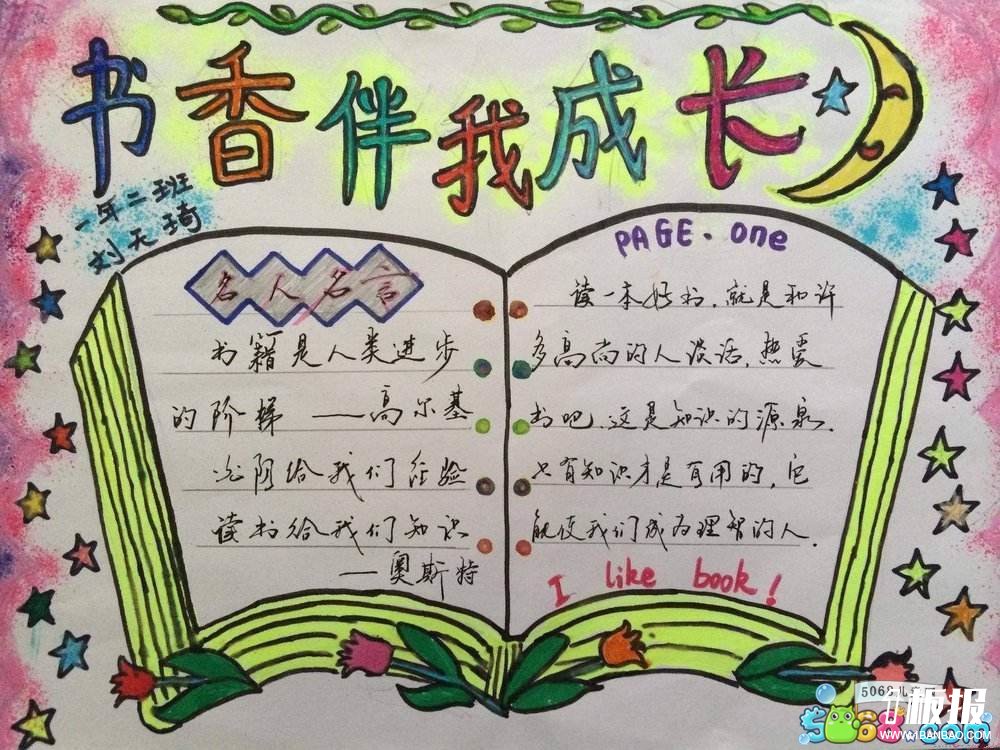 书香伴我成长
一年二班
刘天琦
名人名言
书籍是人类进步
的阶梯 ——高尔基
光阴给我们经验
读书给我们知识
—奥斯特
PAGE. One
读一本好书，就是和许
多高尚的人谈话，热爱
书吧，这是知识的源泉，
只有知识才是有用的，它
能使我们成为理智的人．
I like book!
5068儿
5068.com
板报
WWW.1BANBAO.COM